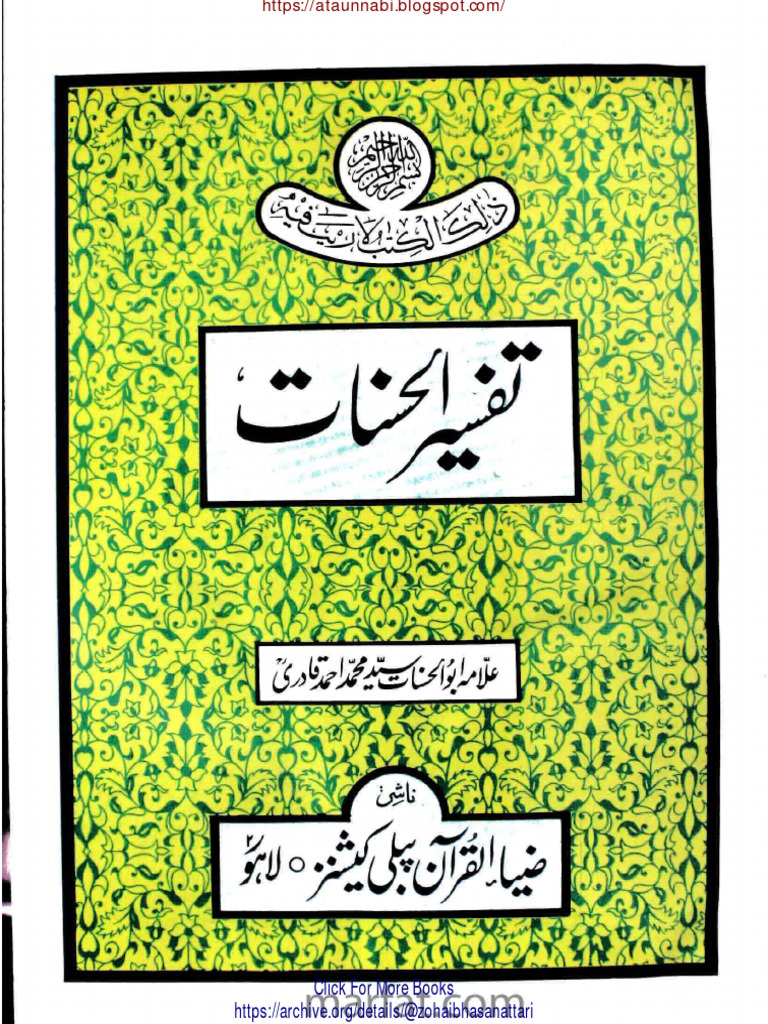 https://ataunnabi.blogspot.com/
بسم الله الرحمن الرحيم
ذٰلِكَ الْكِتٰبُ لَا رَيْبَ فِيْهِ
تفسیر الحسنات
علّامہ ابو الحسنات سیّد محمّد احمد قادریؒ
ناشر
ضیاء القرآن پبلی کیشنز ○ لاہور
Click For More Books
marfat.com
https://archive.org/details/@zohaibhasanattari